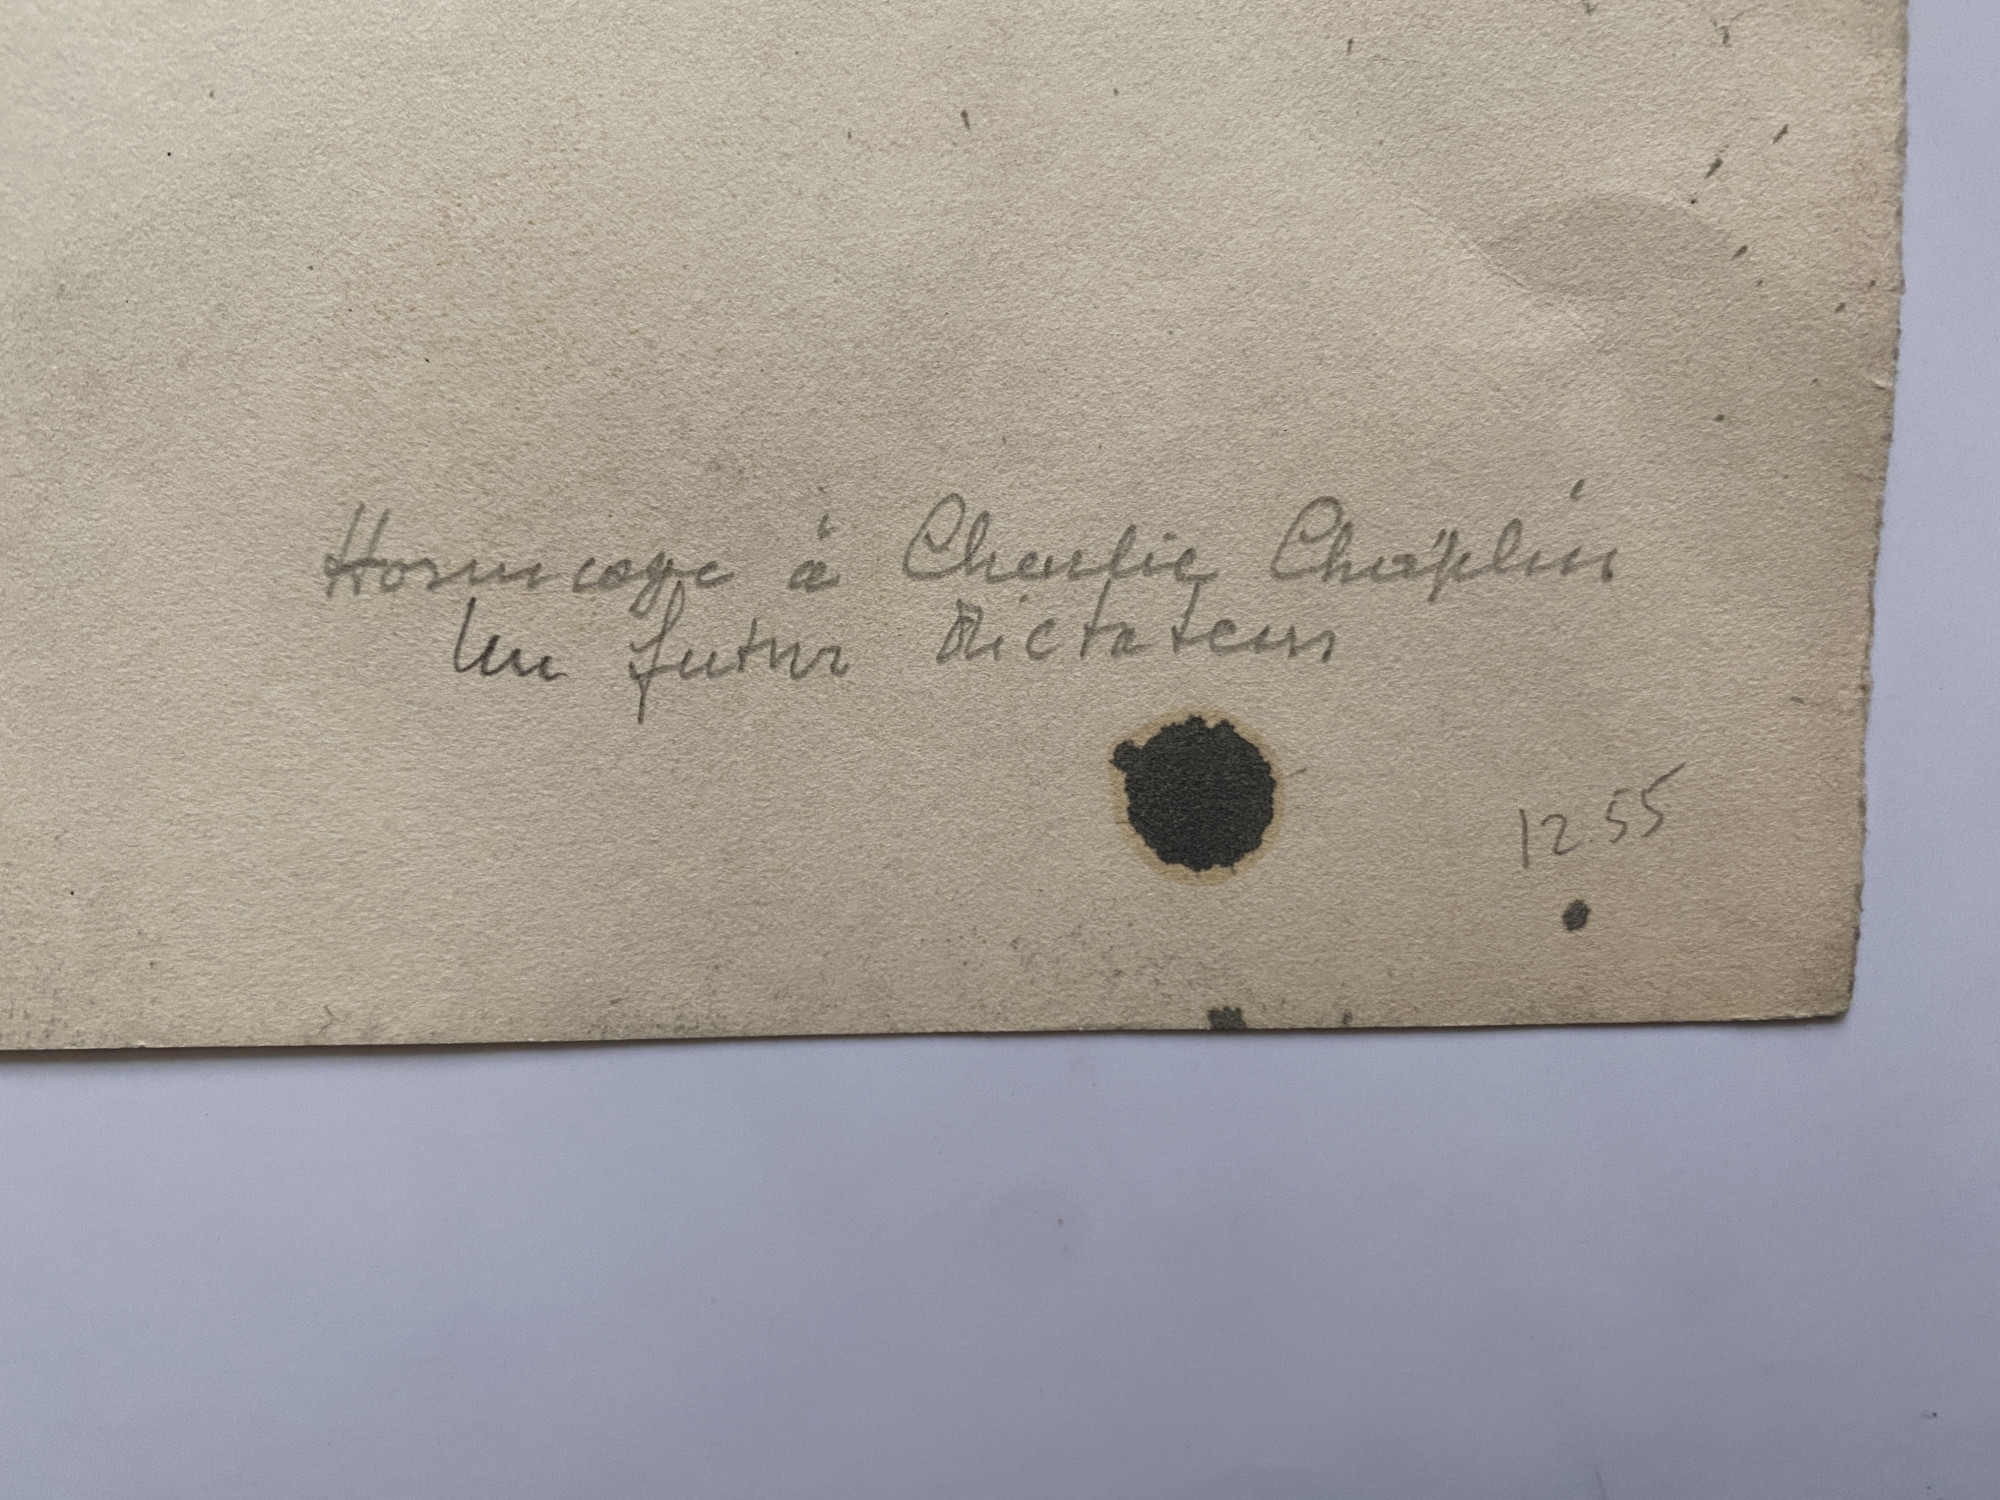 Hommage à Charlie Chaplin
Un futur Dictateur
1255